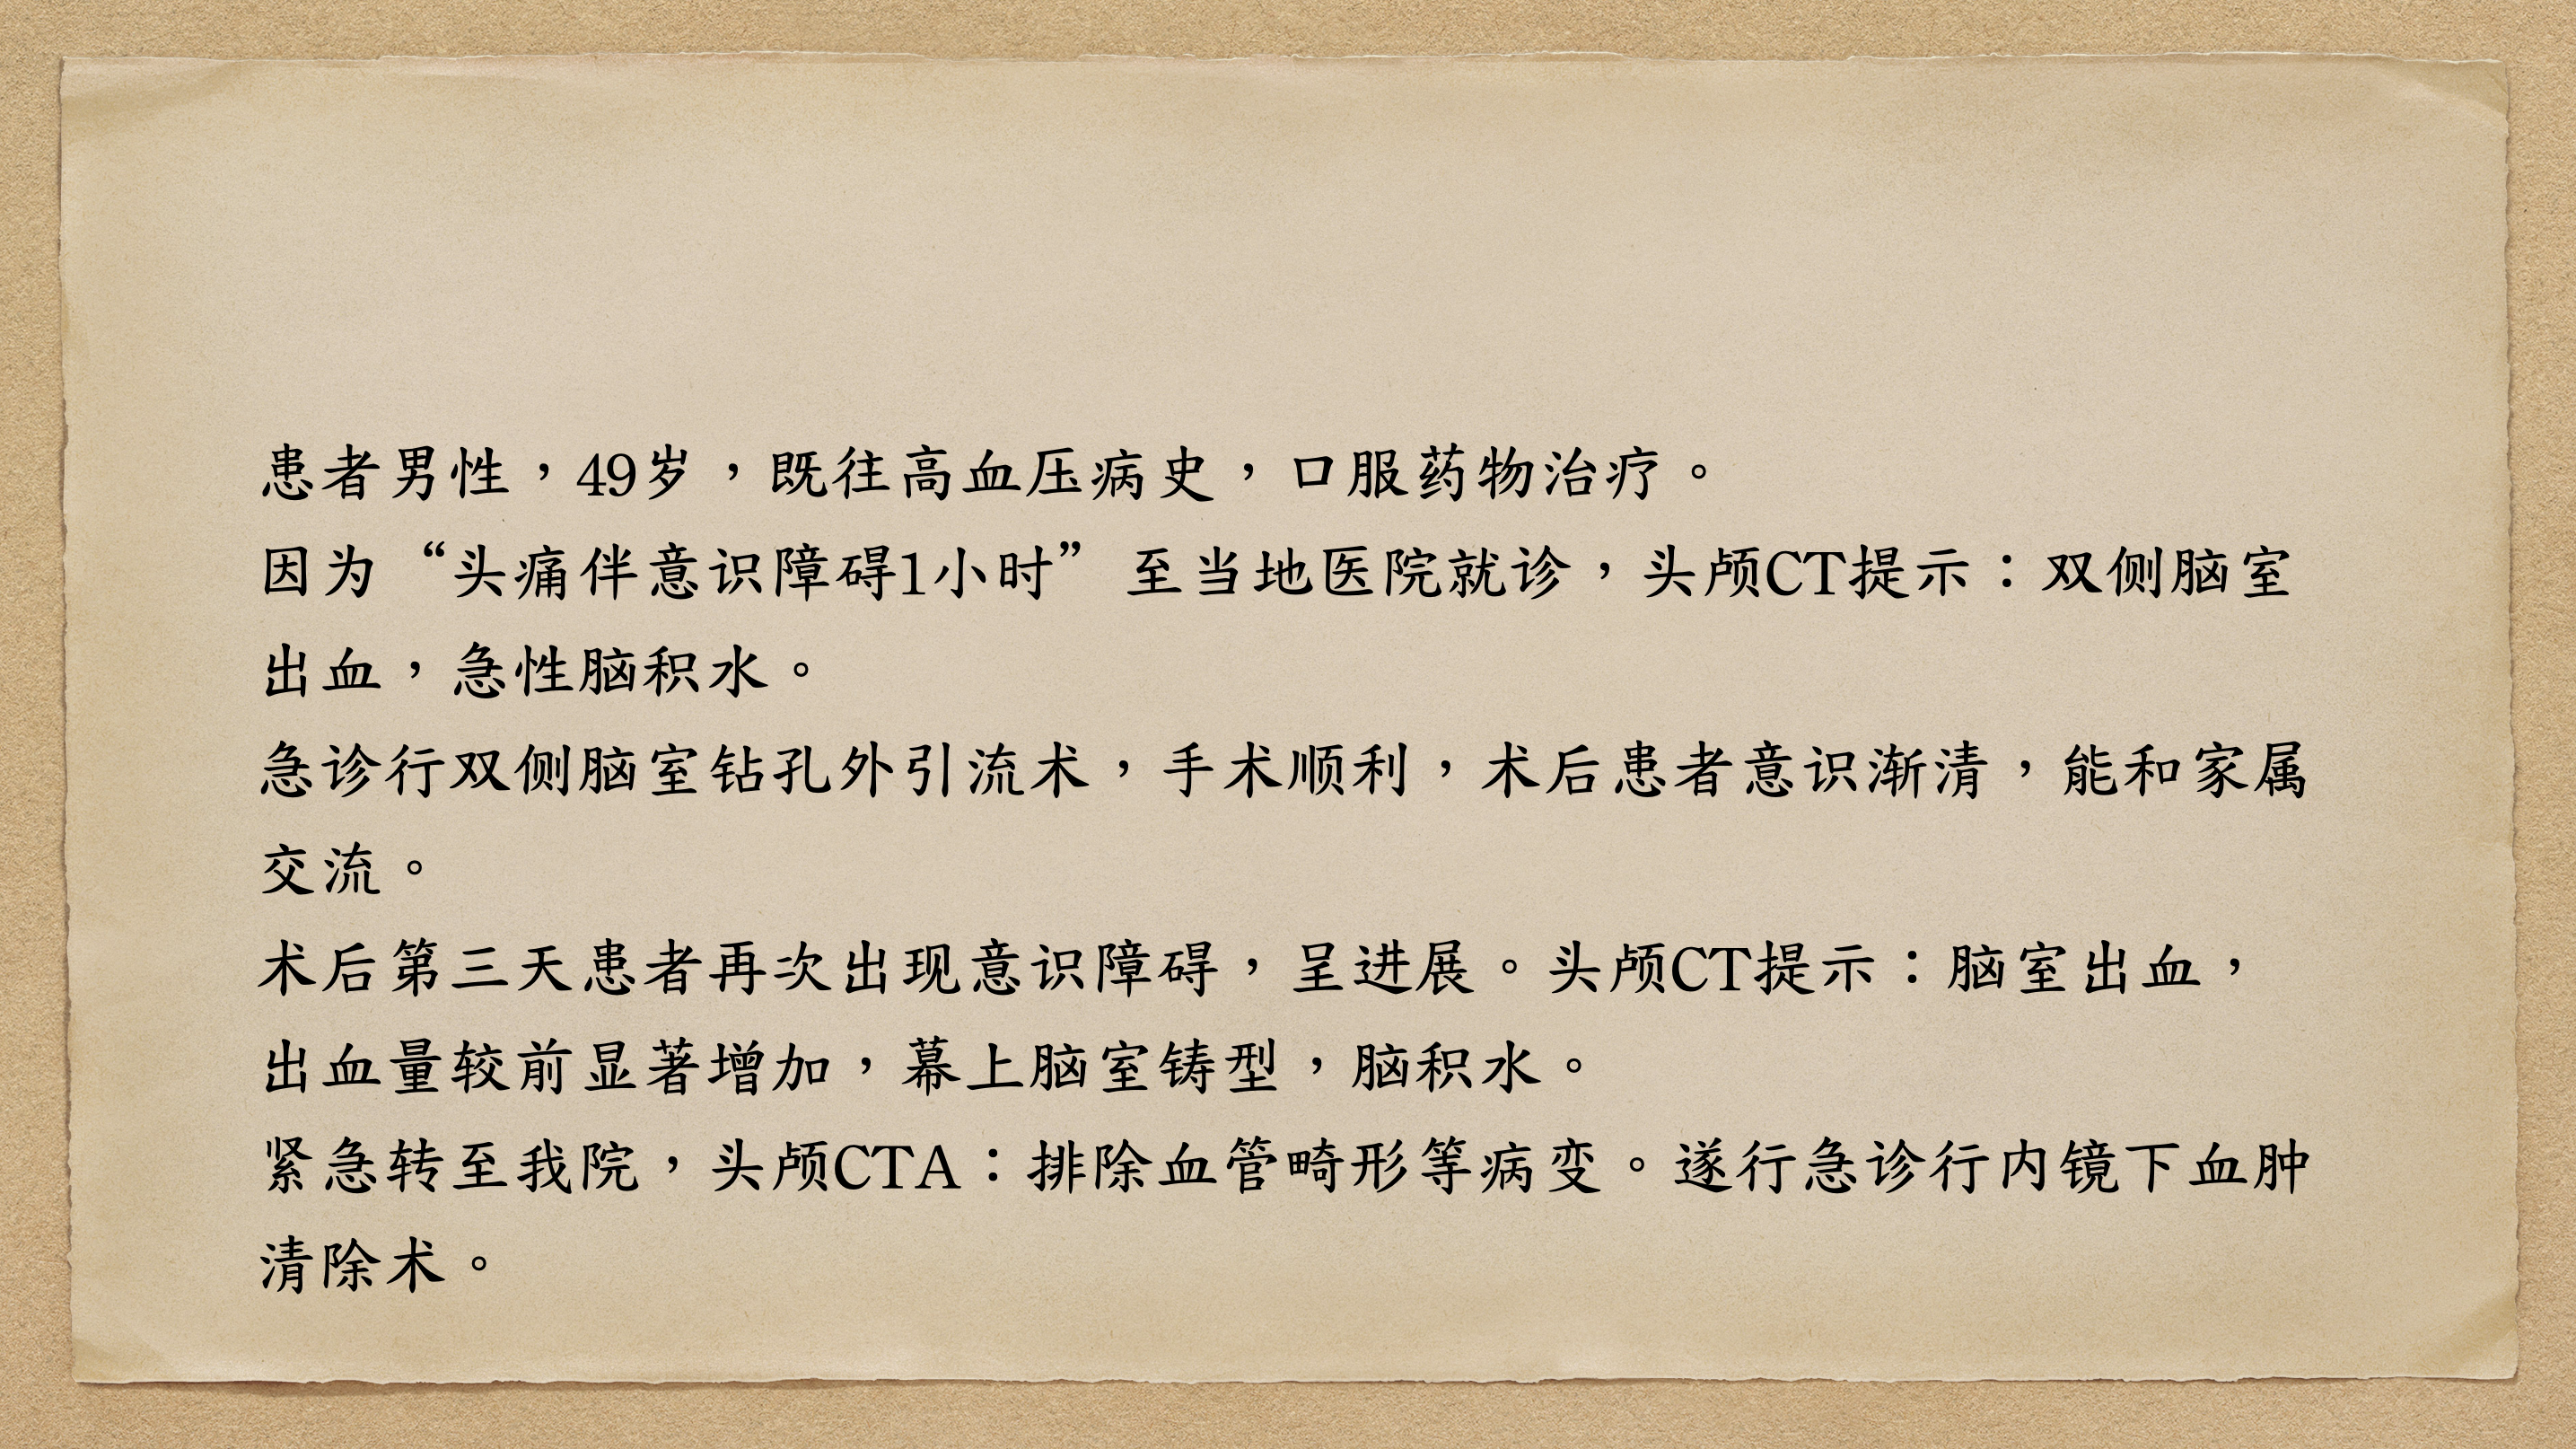 患者男性，49岁，既往高血压病史，口服药物治疗。
因为“头痛伴意识障碍1小时”至当地医院就诊，头颅CT提示：双侧脑室
出血，急性脑积水。
急诊行双侧脑室钻孔外引流术，手术顺利，术后患者意识渐清，能和家属
交流。
术后第三天患者再次出现意识障碍，呈进展。头颅CT提示：脑室出血，
出血量较前显著增加，幕上脑室铸型，脑积水。
紧急转至我院，头颅CTA：排除血管畸形等病变。遂行急诊行内镜下血肿
清除术。